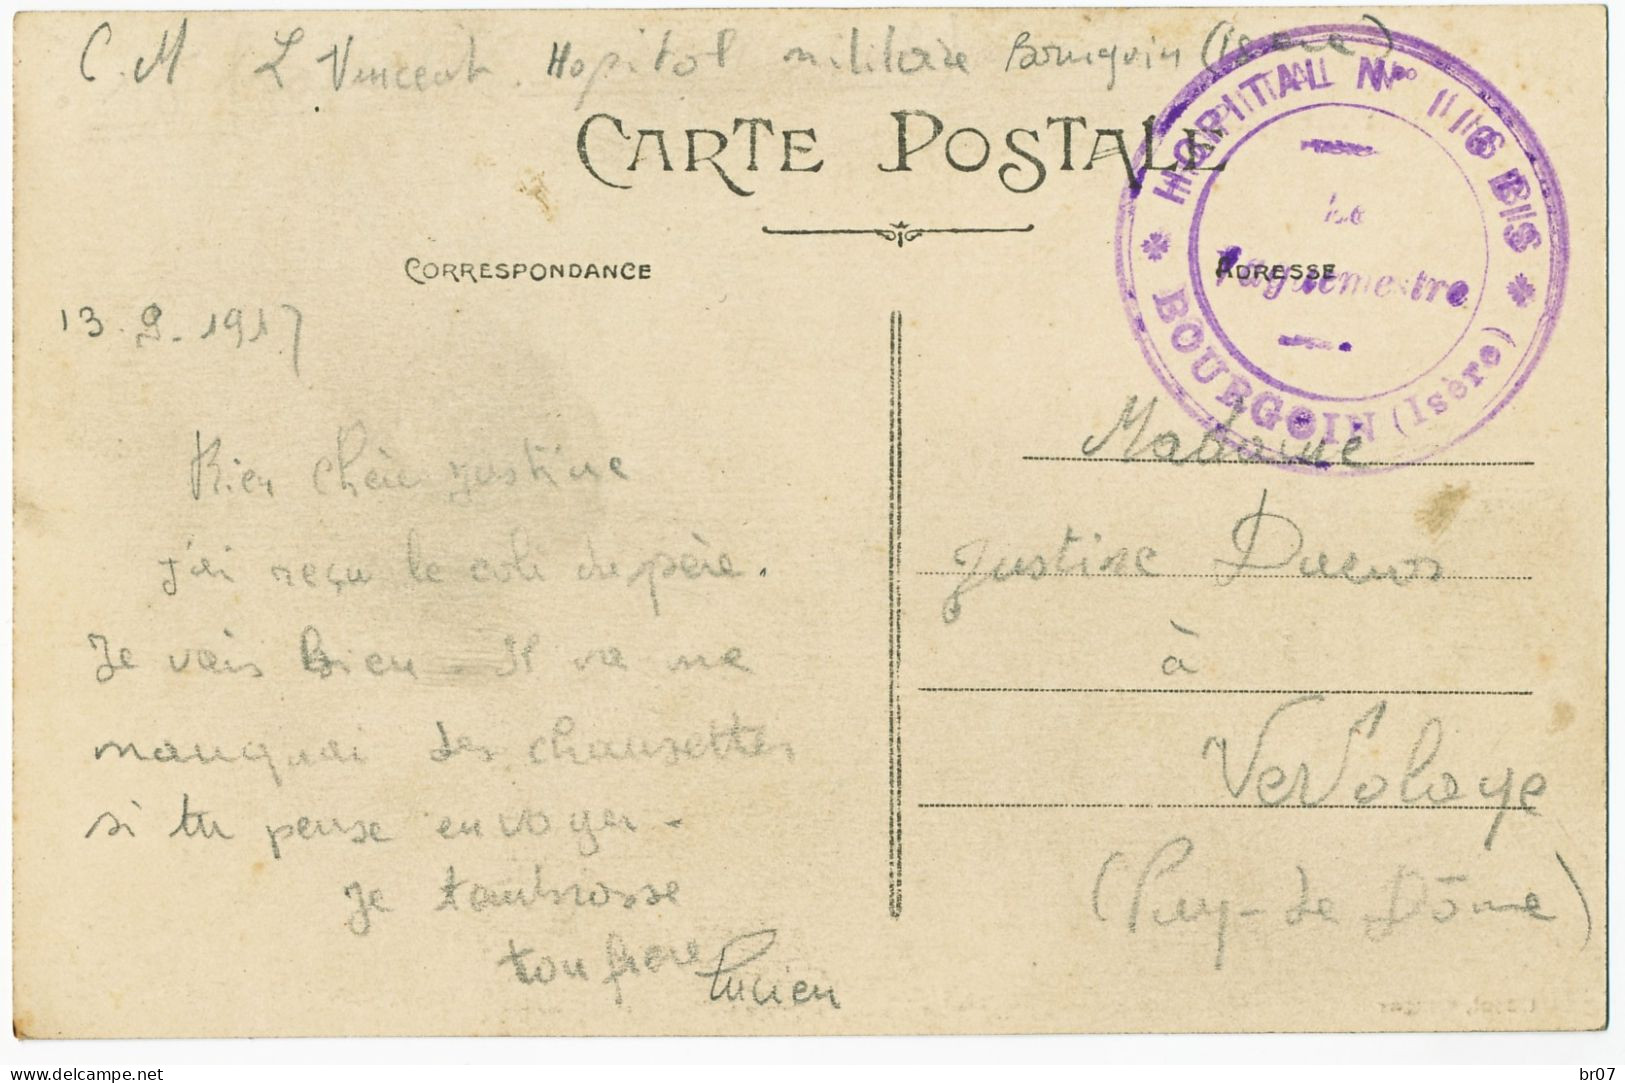 C. M L Vincent Hopital militaire Bourguin (Isère)
CARTE POSTALE
HOPITAL Nº 116 BIS
Le
Vaguemestre
BOURGOIN (Isère)
CORRESPONDANCE
ADRESSE
13. 9. 1917
Bien Chère Justine
j'ai reçu le coli du père.
Je vais bien - Il va me
manquai des chausettes
si tu peuse envoyer -
Je t'ambrasse
ton frère Lucien
Madame
Justine
à
Vertolaye
(Puy-de Dôme)
www.delcampe.net
br07